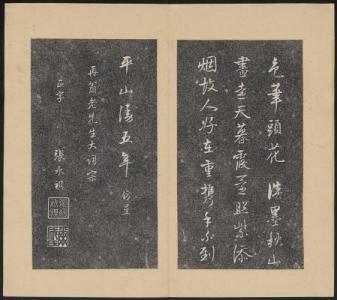 毛筆頭花淡墨秋山
畫遠天暮霞還照紫添
烟故人好在重攜手不到
平山謾五年
再翁老先生大詞宗
正字
張永祺